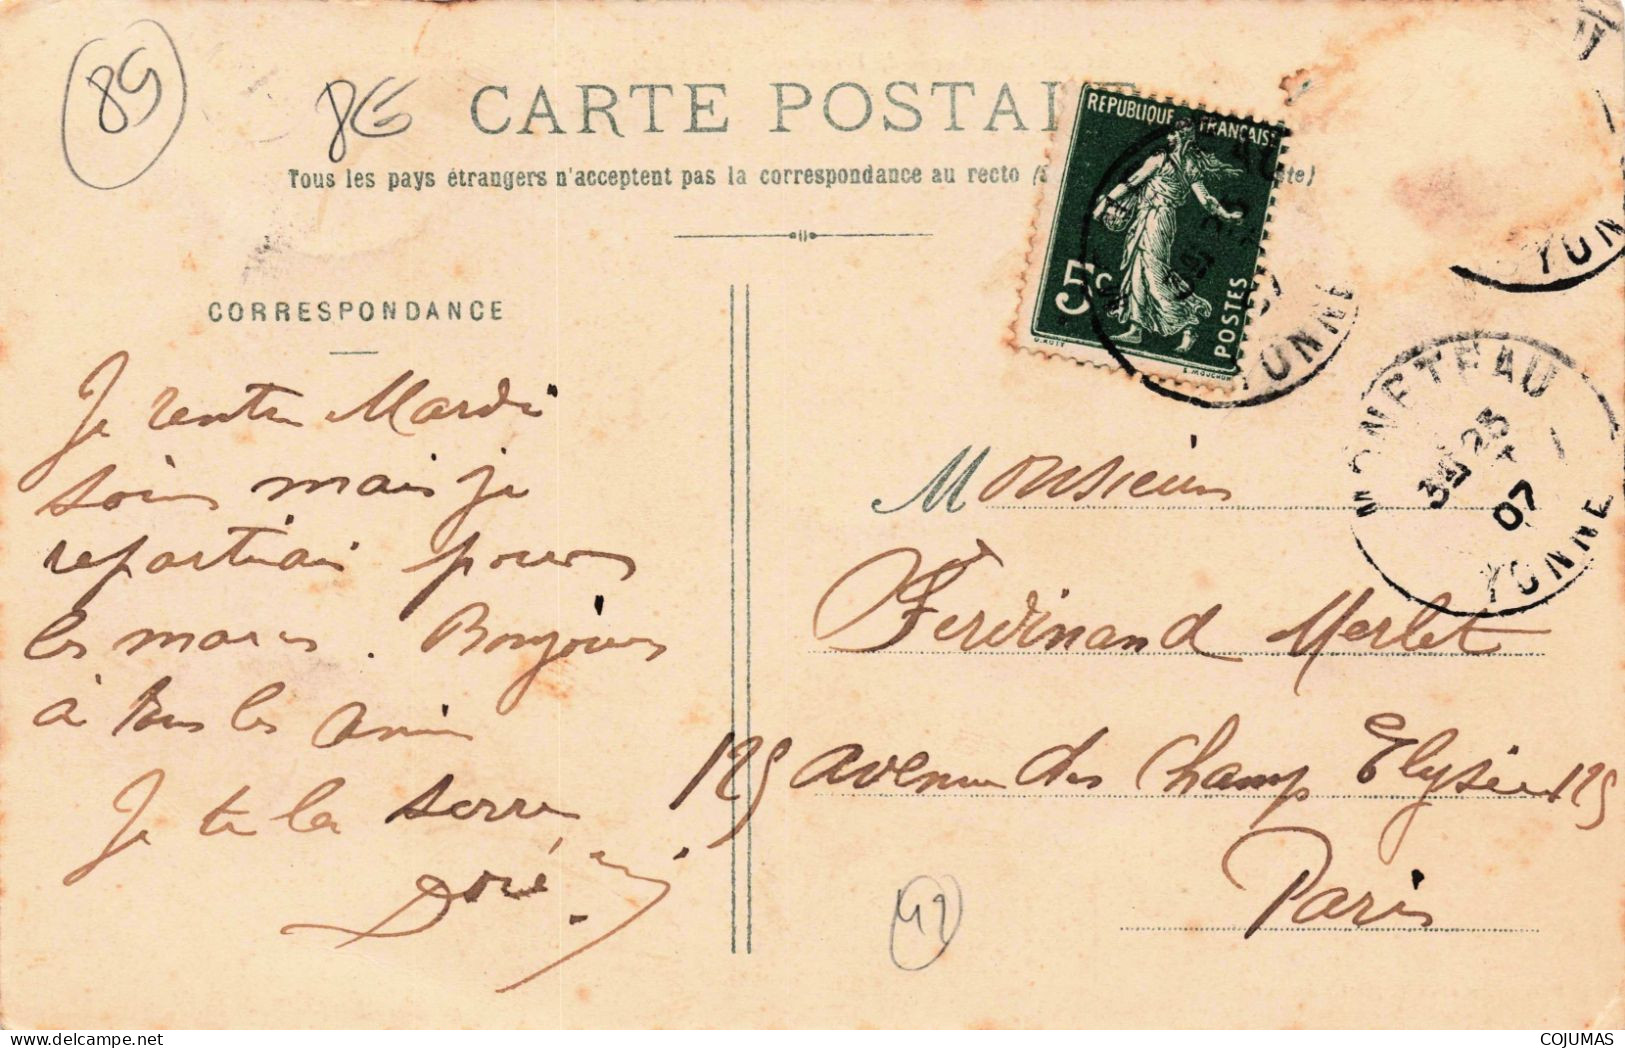 89
CARTE POSTALE
Tous les pays étrangers n'acceptent pas la correspondance au recto
CORRESPONDANCE
REPUBLIQUE FRANÇAISE
5c
POSTES
O. ROTY
YONNE
YONNE
MONETEAU
25
07
YONNE
Je rentre Mardi
soir mais je
repartirai pour
les mares. Bonjour
à tous les amis
Je te la serre
Doré
Monsieur
Ferdinand Merlet
125 avenue des Champ Elysées 125
Paris
42
COJUMAS